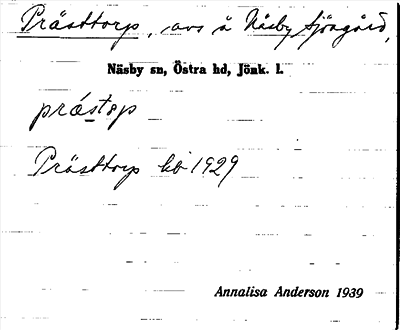 Prästtorp, avs å Näsby Sjögård,
Näsby sn, Östra hd, Jönk. l.
prástop
Prästtorp kb 1929
Annalisa Anderson 1939